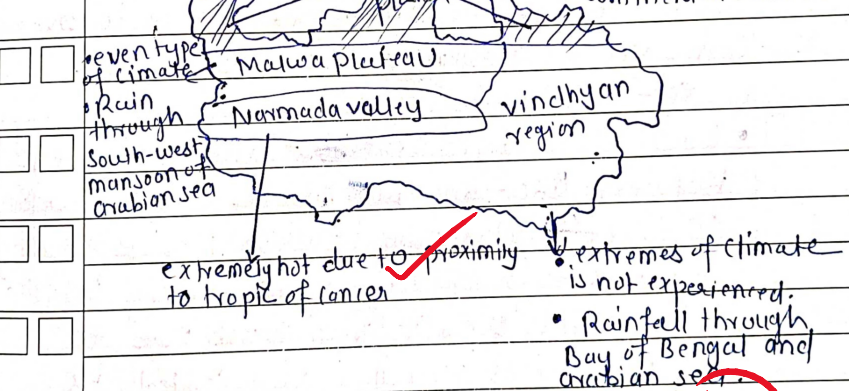 • even type
of climate
• Rain
through
South-west
mansoon of
arabian sea
Malwa plateau
Narmada valley
Vindhyan
region
extremely hot due to proximity
to tropic of cancer
• extremes of climate
is not experienced.
• Rainfall through
Bay of Bengal and
arabian sea.